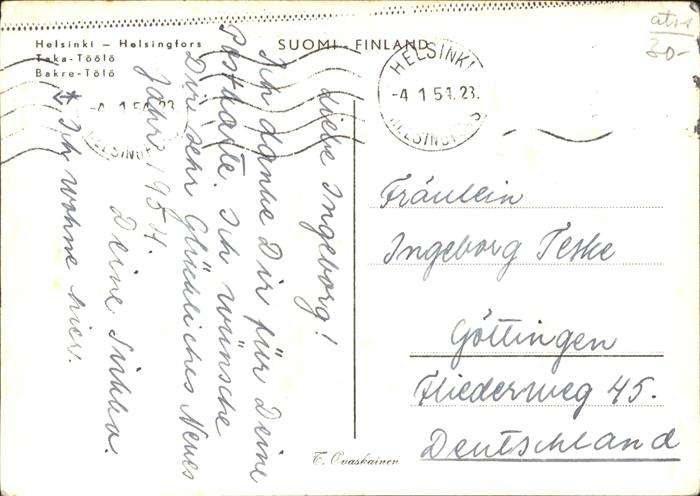 Helsinki – Helsingfors
Taka-Töölö
Bakre-Tölö
SUOMI - FINLAND
30-
HELSINKI
-4.1.54.23.
HELSINGFORS
-4.1.54.23
HELSINGF
Liebe Ingeborg!
Ich danke Dir für Deine
Postkarte. Ich wünsche
Dir sehr Glückliches Neues
Jahr 1954.
Deine Sirkka.
* Ich wohne hier.
Fräulein
Ingeborg Teske
Göttingen
Fliederweg 45.
Deutschland
T. Ovaskainen